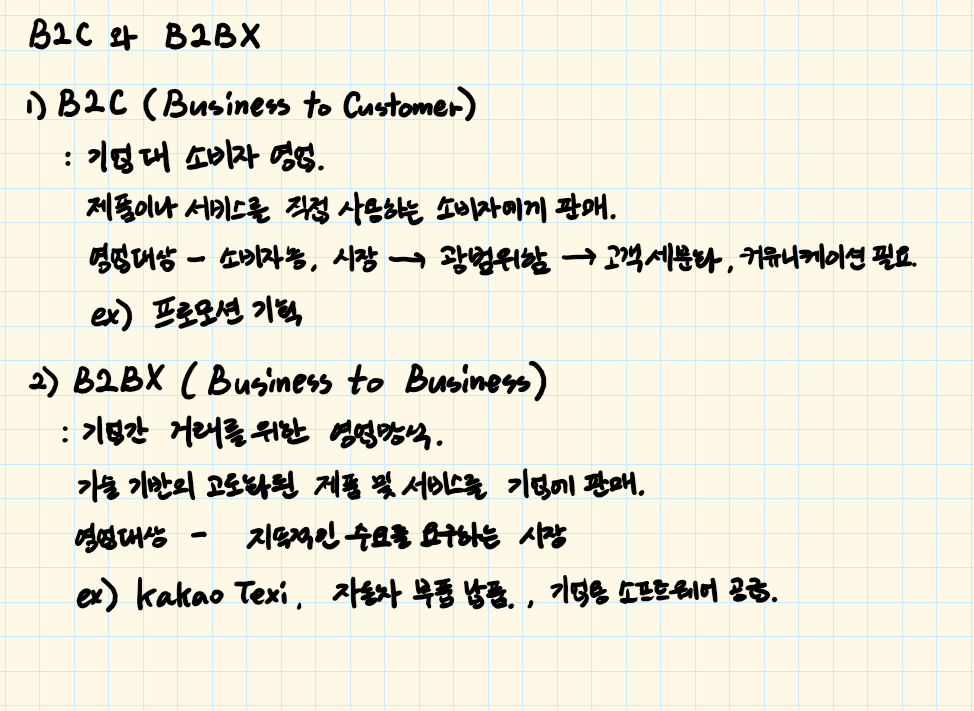 B2C 와 B2BX
1) B2C (Business to Customer)
: 기업 대 소비자 영업.
제품이나 서비스를 직접 사용하는 소비자에게 판매.
영업대상 - 소비자층, 시장 → 광범위함 → 고객 세분화, 커뮤니케이션 필요.
ex) 프로모션 기획
2) B2BX (Business to Business)
: 기업간 거래를 위한 영업방식.
기술 기반의 고도화된 제품 및 서비스를 기업에 판매.
영업대상 - 지속적인 수요를 요구하는 시장
ex) kakao Texi, 자동차 부품 납품., 기업용 소프트웨어 공급.